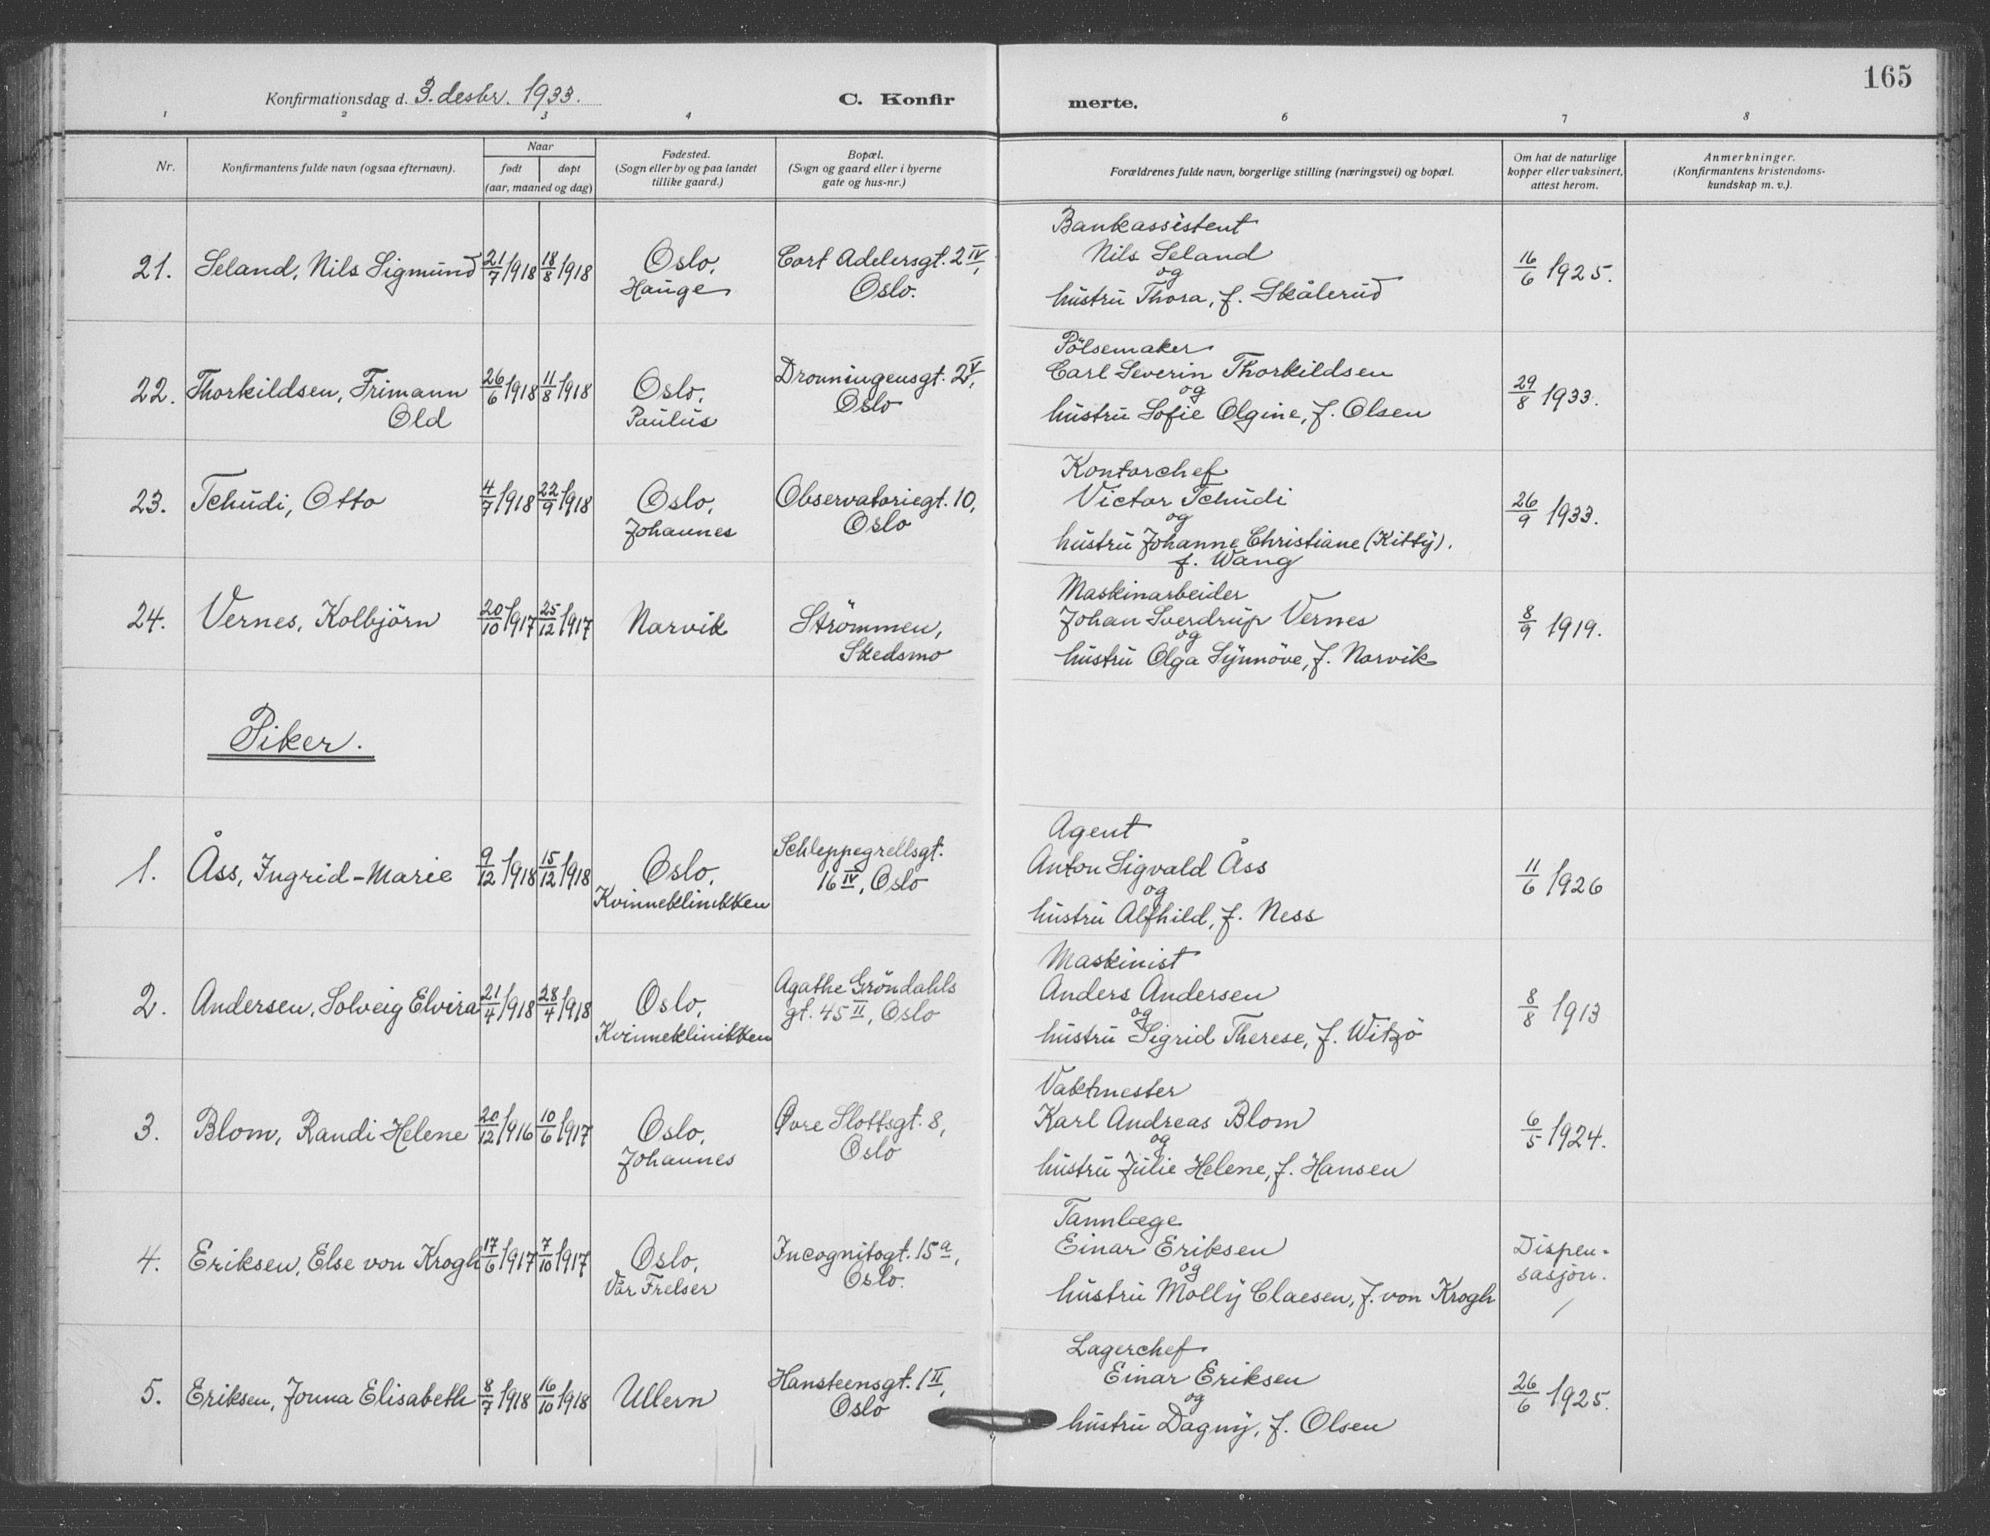 165
Konfirmationsdag d. 3. desbr. 1933.
C. Konfir merte.
1 2 3 4 6 7 8
Nr.
Konfirmantens fulde navn (ogsaa efternavn).
Naar
født
døpt
(aar, maaned og dag)
Fødested.
(Sogn eller by og paa landet
tillike gaard.)
Bopæl.
(Sogn og gaard eller i byerne
gate og hus-nr.)
Forældrenes fulde navn, borgerlige stilling (næringsvei) og bopæl.
Om hat de naturlige
kopper eller vaksinert,
attest herom.
Anmerkninger.
(Konfirmantens kristendoms-
kundskap m. v.).
21. Seland, Nils Sigmund 21/7 1918 18/8 1918
Oslo,
Hauge
Cort Adelersgt. 2 IV,
Oslo.
Bankassistent
Nils Seland
og
hustru Thora, f. Skålerud
16/6 1925.
22. Thorkildsen, Frimann
Old
26/6 1918 11/8 1918
Oslo,
Paulus
Dronningensgt. 2 V,
Oslo
Pölsemaker
Carl Severin Thorkildsen
og
hustru Sofie Olgine, f. Olsen
29/8 1933.
23. Tchudi, Otto 4/7 1918 22/9 1918
Oslo,
Johannes
Observatoriegt. 10,
Oslo
Kontorchef
Victor Tchudi
og
hustru Johanne Christiane (Kitty).
f. Wang
26/9 1933.
24. Vernes, Kolbjörn 20/10 1917 25/12 1917
Narvik
Strömmen,
Skedsmo
Maskinarbeider
Johan Sverdrup Vernes
og
hustru Olga Synnöve, f. Narvik
8/9 1919.
Piker.
1. Åss, Ingrid-Marie 9/12 1918 15/12 1918
Oslo,
Kvinneklinikken
Schleppegrellsgt.
16 IV, Oslo
Agent
Anton Sigvald Åss
og
hustru Alfhild, f. Ness
11/6 1926
2. Andersen, Solveig Elvira 21/4 1918 28/4 1918
Oslo,
Kvinneklinikken
Agathe Gröndahls
gt. 45 II, Oslo
Maskinist
Anders Andersen
og
hustru Sigrid Therese, f. Witzö
8/8 1913
3. Blom, Randi Helene 20/12 1916 10/6 1917
Oslo,
Johannes
Øvre Slottsgt. 8,
Oslo
Vaktmester
Karl Andreas Blom
og
hustru Julie Helene, f. Hansen
6/5 1924.
4. Eriksen, Else von Krogh 17/6 1917 7/10 1917
Oslo,
Vår Frelser
Incognitogt. 15 a,
Oslo.
Tannlæge
Einar Eriksen
og
hustru Molly Claesen, f. von Krogh
Dispen-
sasjon.
5. Eriksen, Jonna Elisabeth 8/7 1918 16/10 1918
Ullern
Hansteensgt. 1 II,
Oslo
Lagerchef
Einar Eriksen
og
hustru Dagny, f. Olsen
26/6 1925.